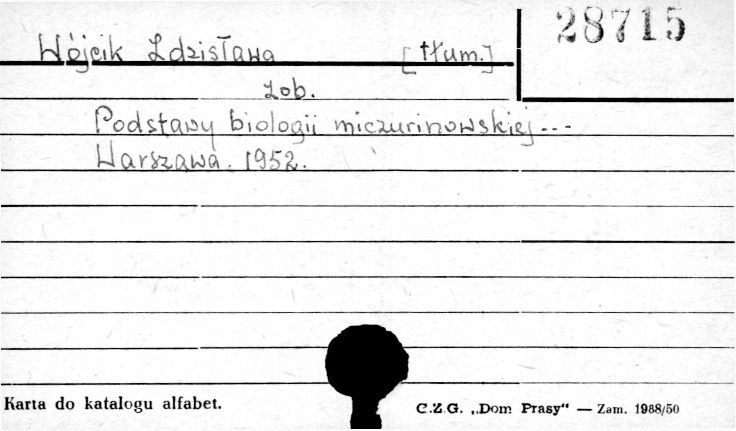 28715
Wójcik Zdzisława [tłum.]
Zob.
Podstawy biologii miczurinowskiej---
Warszawa. 1952.
Karta do katalogu alfabet. C.Z.G. „Dom Prasy“ — Zam. 1988/50